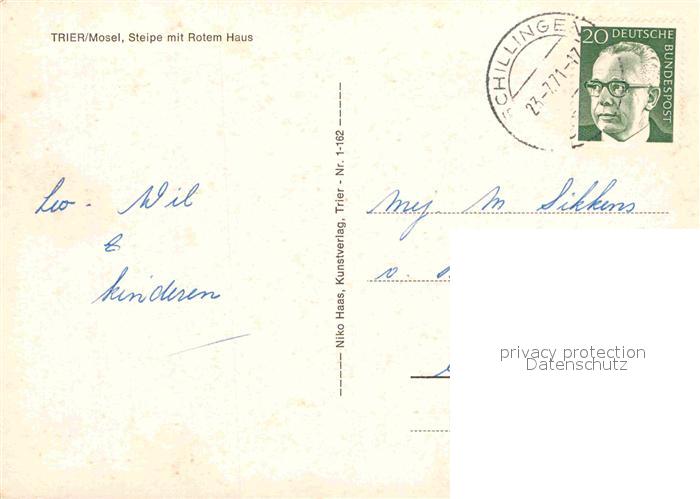 TRIER/Mosel, Steipe mit Rotem Haus
SCHILLINGEN
23.-7.71-17
20 DEUTSCHE
BUNDESPOST
Niko Haas, Kunstverlag, Trier - Nr. 1-162
Leo - Wil
&
kinderen
Mej. M Sikkens
v.
privacy protection
Datenschutz